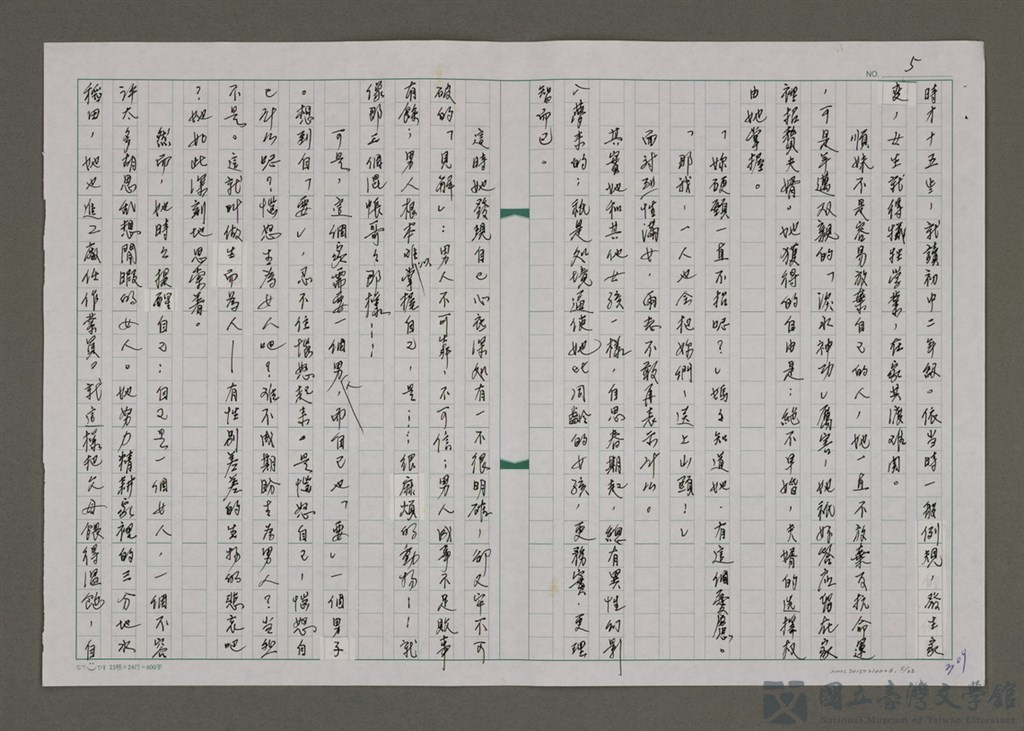 NO. 5
時才十五生，就讀初中二年級。依當時一般例規，發生家
變，女生就得犧牲學業，在家共渡難關。
順妹不是容易放棄自己的人，她一直不放棄反抗命運
，可是年邁双親的「淡水神功」厲害，她祇好答应留在家
裡招贅夫婿。她獲得的自由是：絕不早婚，夫婿的选擇权
由她掌握。
「妳硬頸一直不招呢？」媽々知道她有這個意愿。
「那我，一人也会把妳們，送上山頭！」
面对烈性滿女，兩老不敢再表示什么。
其實她和其他女孩一樣，自思春期起，總有異性的影
入夢來的；祇是処境逼使她比同齡的女孩，更務實，更理
智而已。
這時她發現自己心衣深処有一不很明確，卻又牢不可
破的「見解」：男人不可靠，不可信；男人成事不足敗事
有餘；男人根本难以掌握自己，是……很麻煩的動物——就
像那三個混帳哥々那樣……
可是，這個家需要一個男人，而自己也「要」一個男子
。想到自「要」，忍不住惱怒起來。是惱怒自己，惱怒自
己什么呢？惱怒生為女人吧？难不成期盼生為男人？当然
不是。這就叫做生而為人——有性別差差的生物的悲哀吧
？她如此深刻地思索着。
然而，她時々提醒自己：自己是一個女人，一個不容
许太多胡思乱想閒暇的女人。她努力精耕家裡的三分地水
稻田，她也進工廠任作業員。就這樣把父母餵得溫飽，自
23格×24行=600字
國立臺灣文學館
National Museum of Taiwan Literature